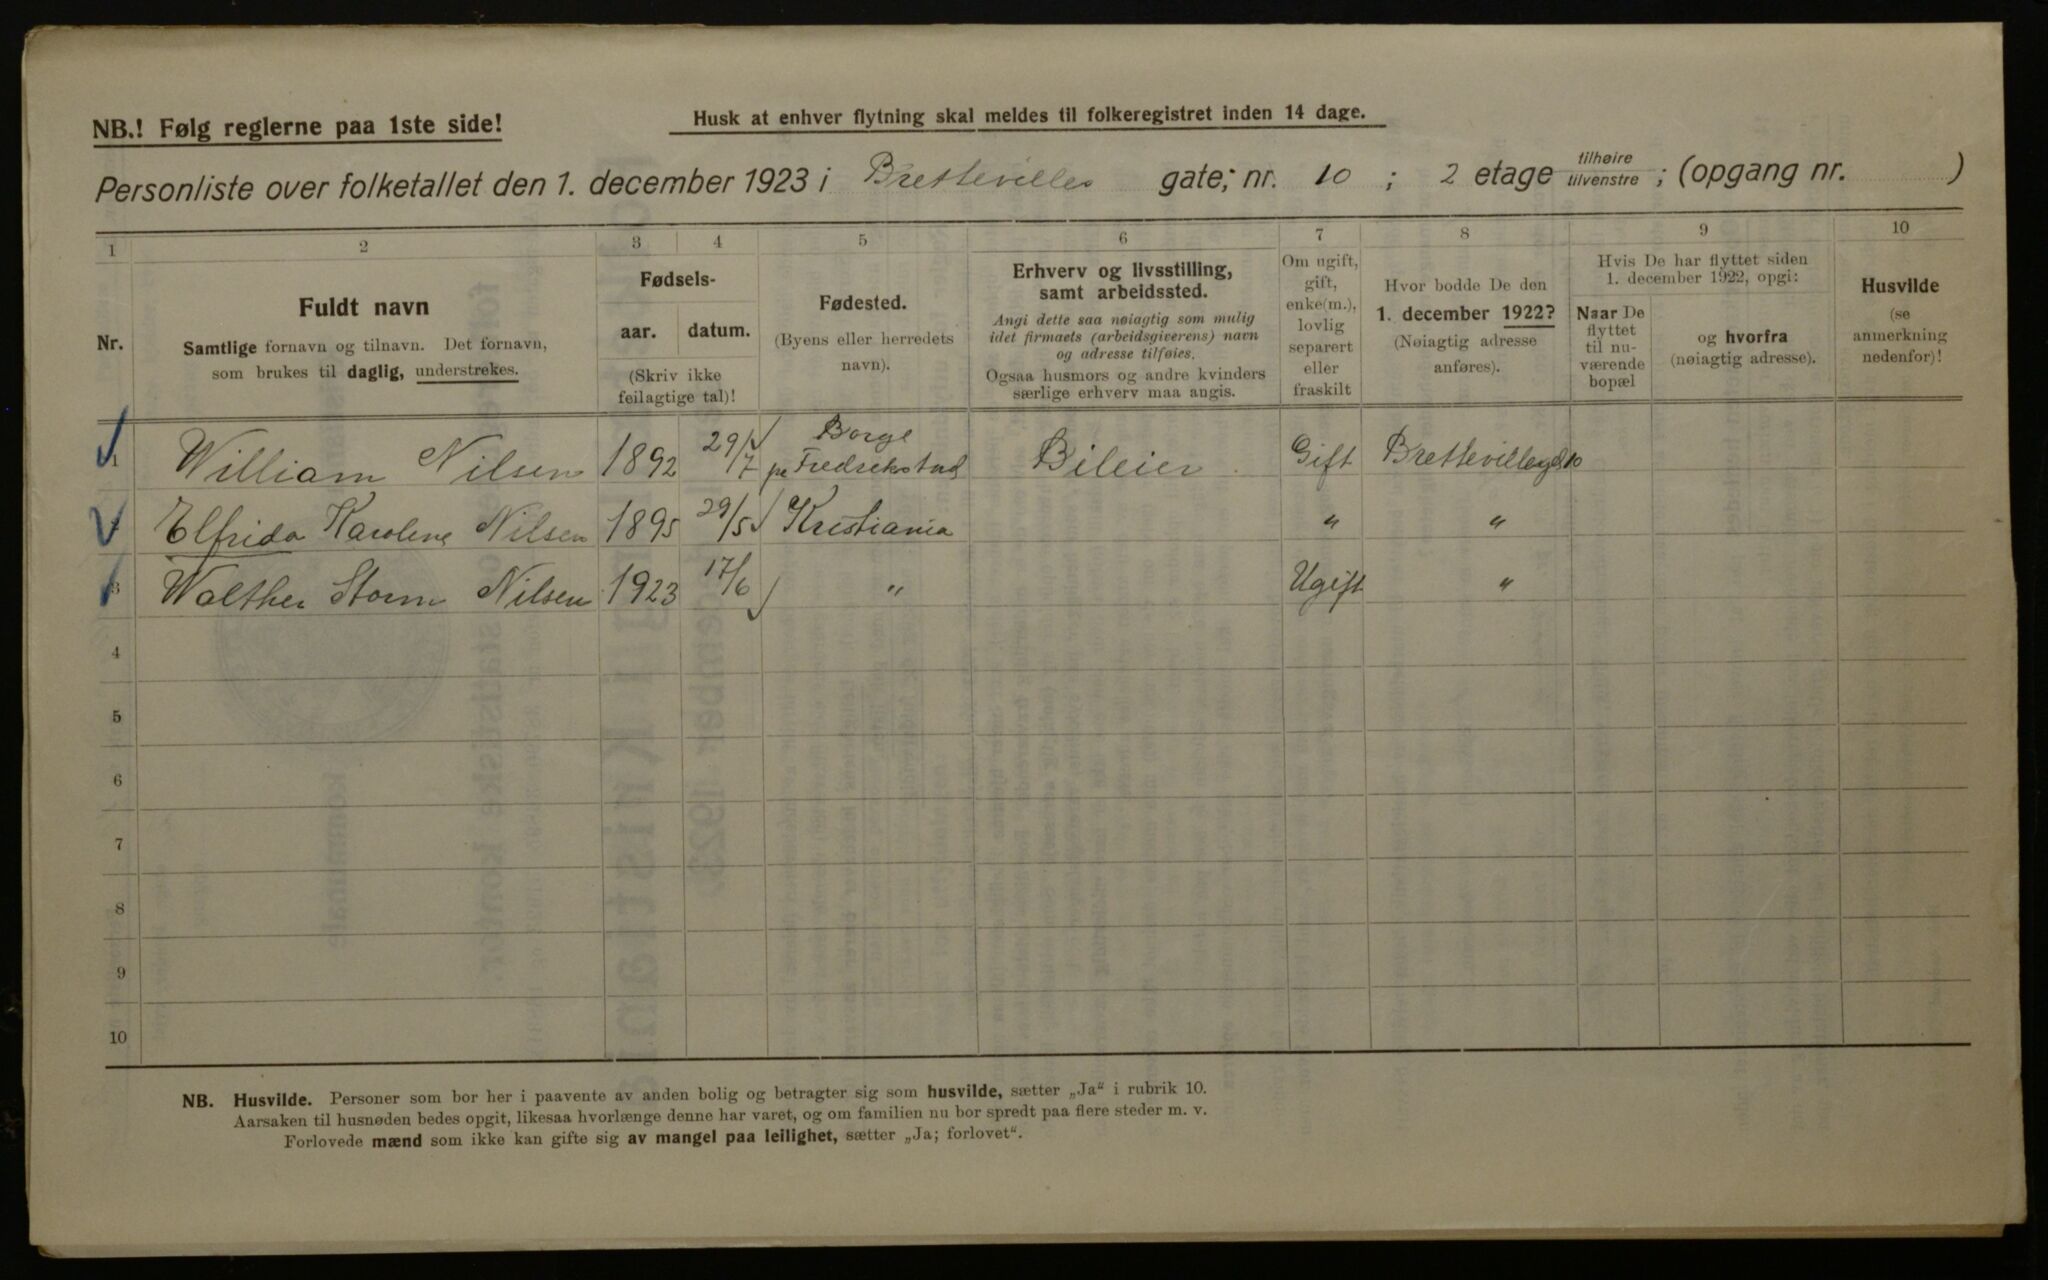 NB.! Følg reglerne paa 1ste side!
Husk at enhver flytning skal meldes til folkeregistret inden 14 dage.
Personliste over folketallet den 1. december 1923 i Brettevilles gate; nr. 10 ; 2 etage tilhøire tilvenstre ; (opgang nr. )
1 2 3 4 5 6 7 8 9 10
Nr.
Fuldt navn
Samtlige fornavn og tilnavn. Det fornavn,
som brukes til daglig, understrekes.
Fødsels-
aar. datum.
(Skriv ikke
feilagtige tal)!
Fødested.
(Byens eller herredets
navn).
Erhverv og livsstilling,
samt arbeidssted.
Angi dette saa nøiagtig som mulig
idet firmaets (arbeidsgiverens) navn
og adresse tilføies.
Ogsaa husmors og andre kvinders
særlige erhverv maa angis.
Om ugift,
gift,
enke(m.),
lovlig
separert
eller
fraskilt
Hvor bodde De den
1. december 1922?
(Nøiagtig adresse
anføres).
Hvis De har flyttet siden
1. december 1922, opgi:
Naar De
flyttet
til nu-
værende
bopæl
og hvorfra
(nøiagtig adresse).
Husvilde
(se
anmerkning
nedenfor)!
1 William Nilsen 1892 29/7 Borge pr Fredrikstad Bileier Gift Brettevillesgt 10
Elfrida Karoline Nilsen 1895 29/5 Kristiania " "
3 Walther Storm Nilsen 1923 17/6 " Ugift "
4
5
6
7
8
9
10
NB. Husvilde. Personer som bor her i paavente av anden bolig og betragter sig som husvilde, sætter „Ja“ i rubrik 10.
Aarsaken til husnøden bedes opgit, likesaa hvorlænge denne har varet, og om familien nu bor spredt paa flere steder m. v.
Forlovede mænd som ikke kan gifte sig av mangel paa leilighet, sætter „Ja; forlovet“.